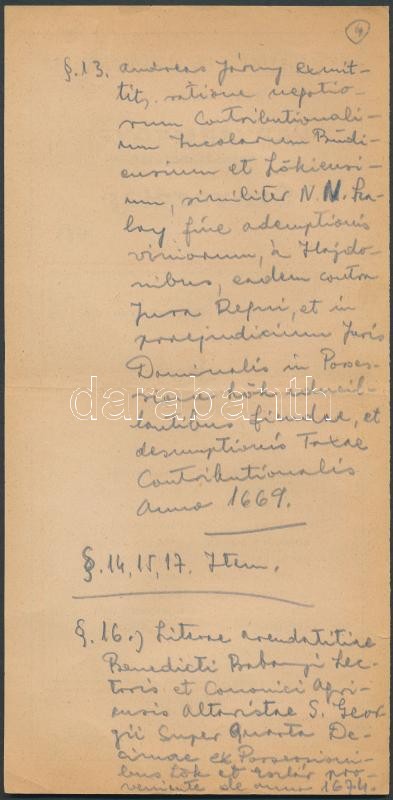 4
§.13. Andreas Járny exmit-
tit, ratione negotio-
rum Contributionali-
um Incolarum Budi-
ensium et Lökiensi-
um, similiter N. N. Sza-
lay fine ademptionis
viniorum, à Hajdo-
nibus, eadem contra
Jura Regni, et in
praejudicium Juris
Dominalis in Posses-
Lök
fiendae, et
desumptionis Taxae
Contributionalis
Anno 1669.
§.14,15,17. Item.
§.16.) Literae arendatitiae
Benedicti Babanyi Lec-
toris et Canonici Agri-
ensis Altaristae S. Geor-
gii Super Quarta De-
cimae ex Possessioni-
bus Lök et Eszlár pro-
veniente de anno 1674.
darabanth